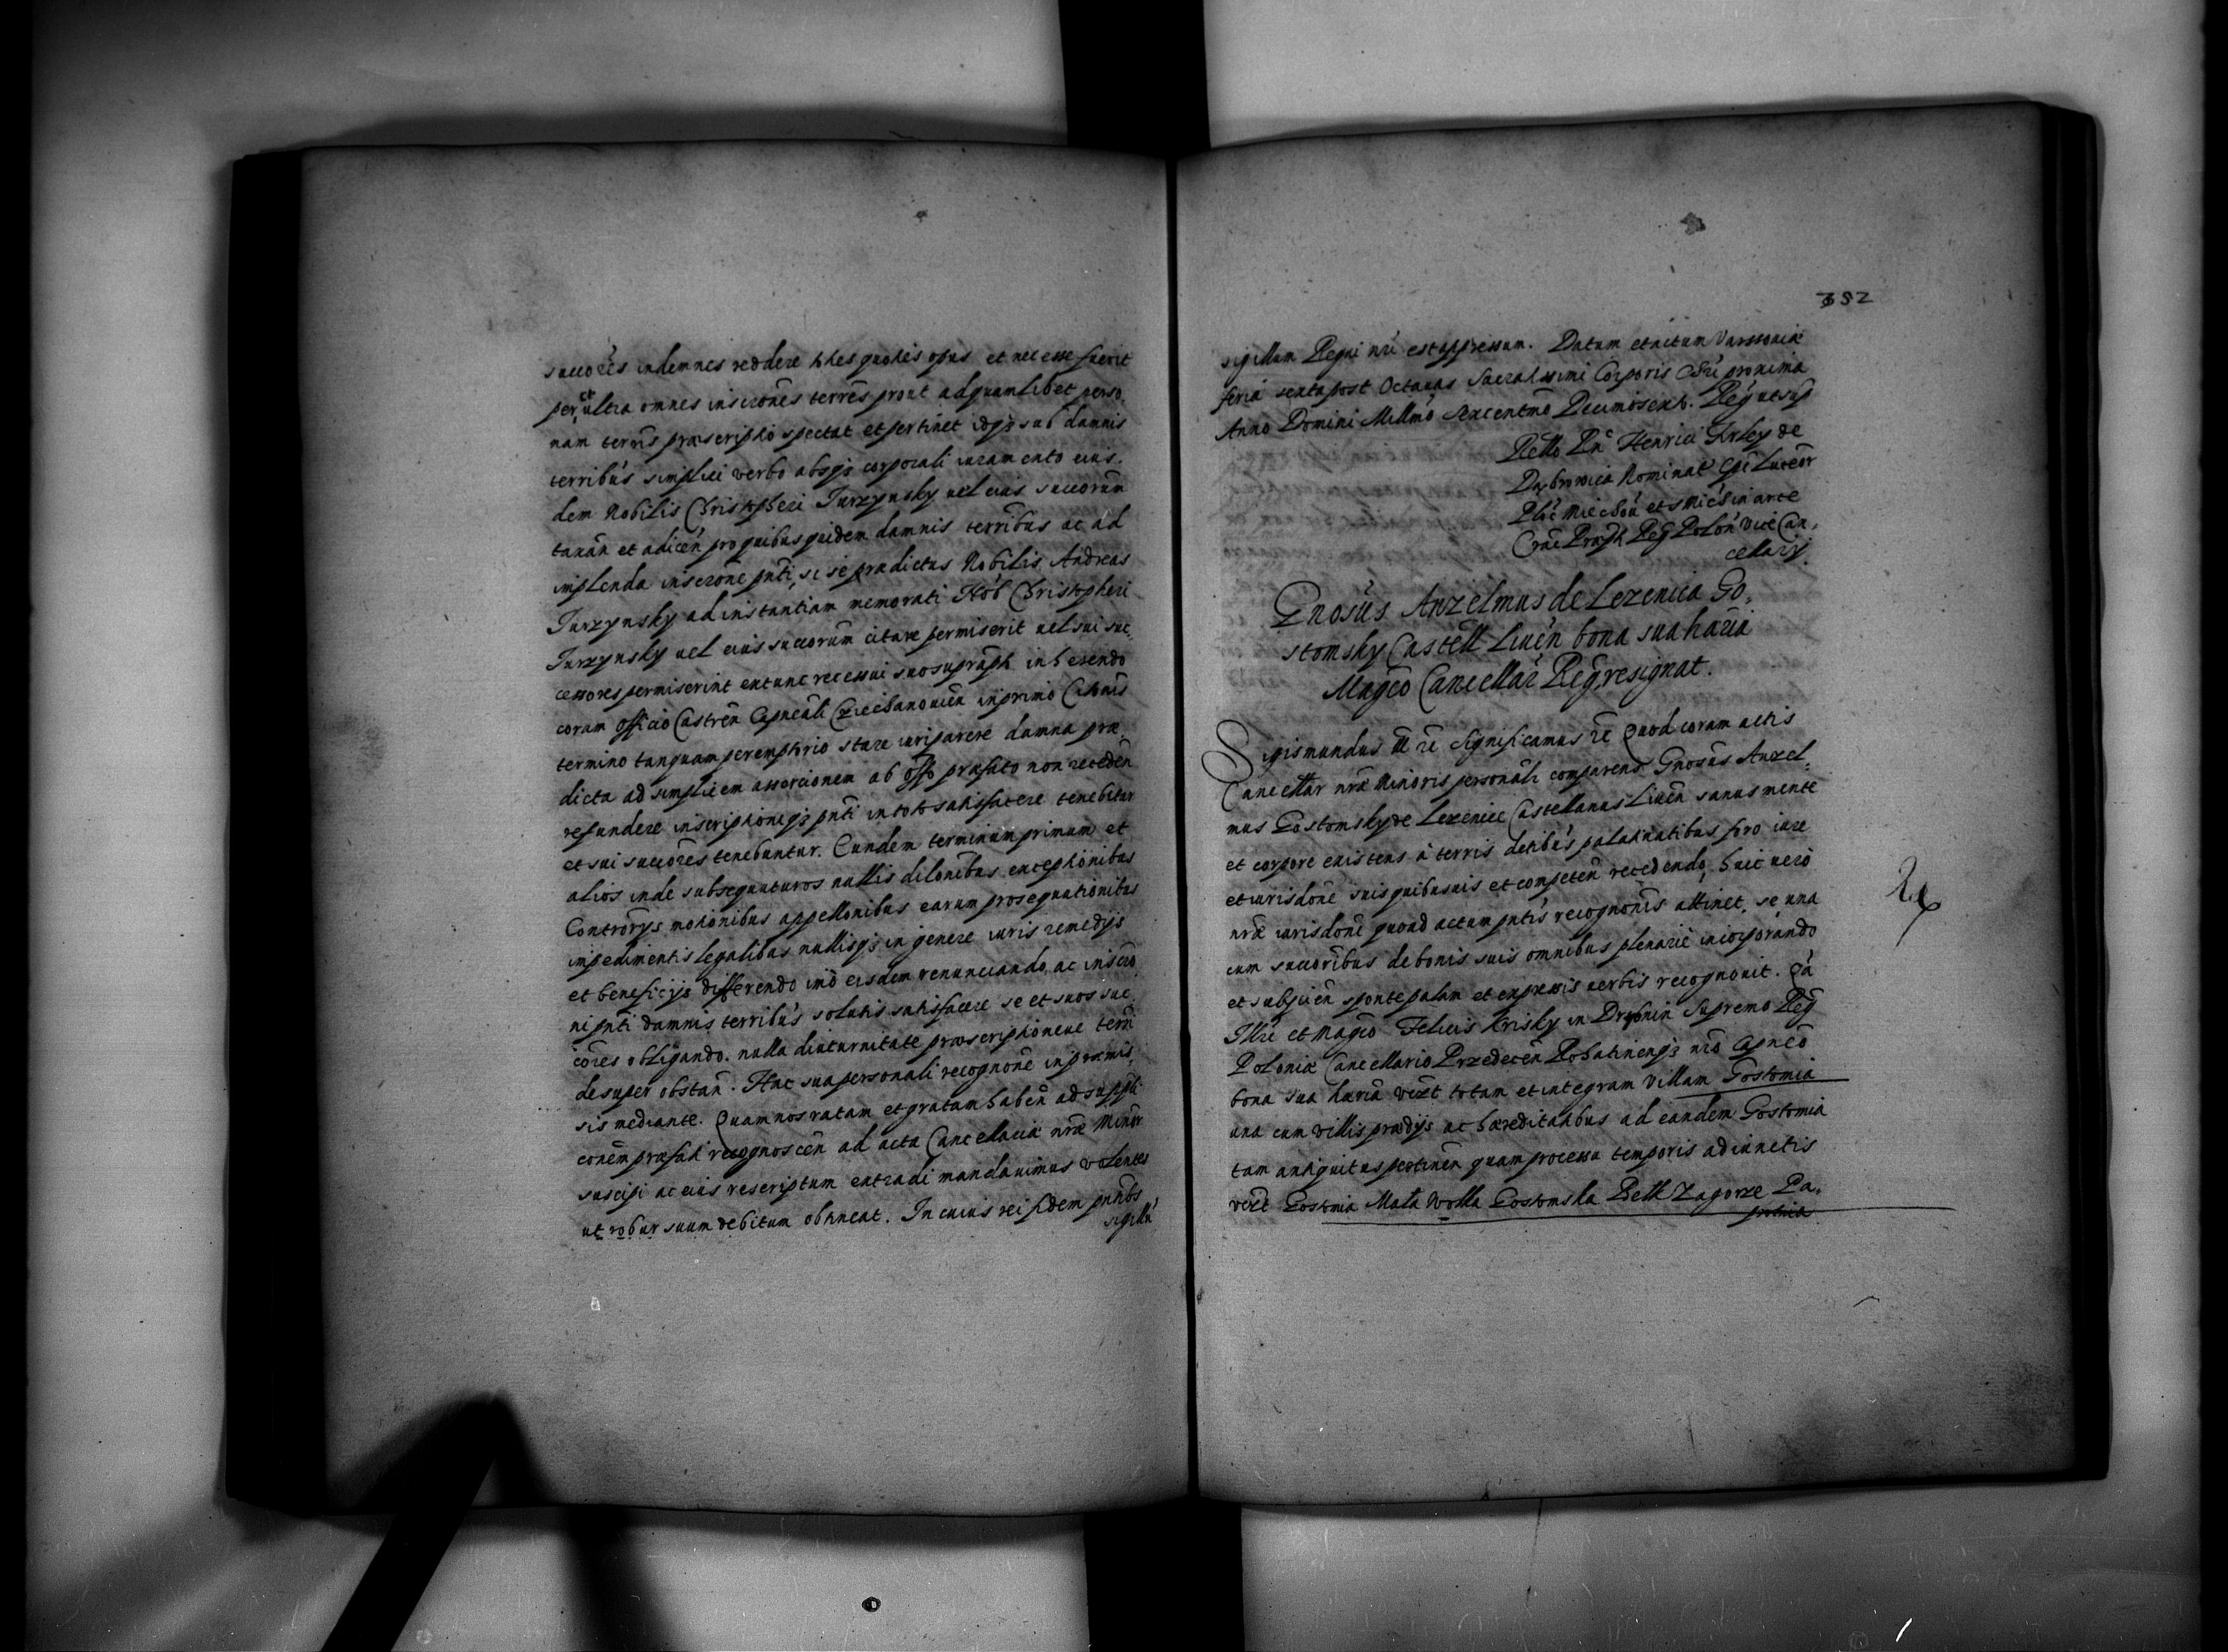 succores indemnes reddere hles quoties opus et necesse fuerit
per et ultra omnes inscrones terres prout ad quamlibet perso,
nam terris præscriptio spectat et pertinet idq3 sub damnis
terribus simplici verbo absq3 corporali iuramento eius,
dem Nobilis Christopheri Jurzynsky uel eius succorum
taxan et adicen pro quibus quidem damnis terribus ac ad
implenda inscrone pnti, si se prædictus Nobilis Andreas
Jurzynsky ad instantiam memorati Nob Christopheri
Jurzynsky uel eius succorum citare permiserit uel sui suc,
cessores permiserint extunc recessui suo supraph inhærendo
coram officio Castren Capneali Cziechanouien in primo Citonis
termino tanquam peremptorio stare iuri parere damna præ,
dicta ad simplicem assercionem ab offo præfato non receden
refundere inscriptioniq3 pnti in toto satisfacere tenebitur
et sui succores tenebuntur. Eundem terminum primum et
alios inde subsequuturos nullis dilonibus exceptionibus
Controrys motionibus appellonibus earum prosequutionibus
impedimentis legalibus nullisq3 in genere iuris remedijs
et beneficijs differendo imo eisdem renunciando, ac inscro,
ni pnti damnis terribus solutis satisfacere se et suos suc,
cores obligando. nulla diuturnitate præscriptioneue terri
desuper obstan. Hac sua personali recognone in præmis,
sis mediante. Quam nos ratam et gratam haben ad suppli
conem præfati recognoscen ad acta Cancellariæ nræ Minor
suscipi ac eius rescriptum extradi mandauimus volentes
ut robur suum debitum obtineat. In cuius rei fidem pntibs
sigillu
352
sigillum Regni nri est appressum. Datum et actum Varssouiæ
feria sexta post Octauas Sacratissimi Corporis Chri proxima
Anno Domini Millmo Sexcentmo Decimosexto. Reg ut sup
Relto Rn Henrici Firley de
Dąbrowica Nominat Epi Luceor
Plic Miechou et S Mich in arce
Crac Præpti Reg Polon Vice Can,
cellarij.
Gnosus Anzelmus de Lezenica Go,
stomsky Castell Liuen bona sua hæria
Magco Cancellar Reg resignat.
Sigismundus III re Significamus re Quod coram actis
Cancellar nræ Minoris personali comparens Gnosus Anzel,
mus Gostomsky de Lezenicz Castellanus Liuen sanus mente
et corpore existens à terris detibus palatinatibus foro iure
et iurisdone suis quibusuis et competen recedendo, huic uero
nræ iurisdoni quoad actum pntis recognonis attinet, se una
cum succoribus de bonis suis omnibus plenarie incorporando
et subycien sponte palam et expressis uerbis recognouit. Qa
Illri et Magco Felicis Krisky in Drobnin Supremo Reg
Poloniæ Cancellario Przedecen Rohatinenq3 nro Capneo
bona sua hæria vizt totam et integram villam Gostomia
una cum villis prædijs ac hæreditatibus ad eandem Gostomia
tam antiquitus pertinen quam processu temporis adiunctis
vizt Gostomia Mała Wolla Gostomska Belk Zagorze Pa,